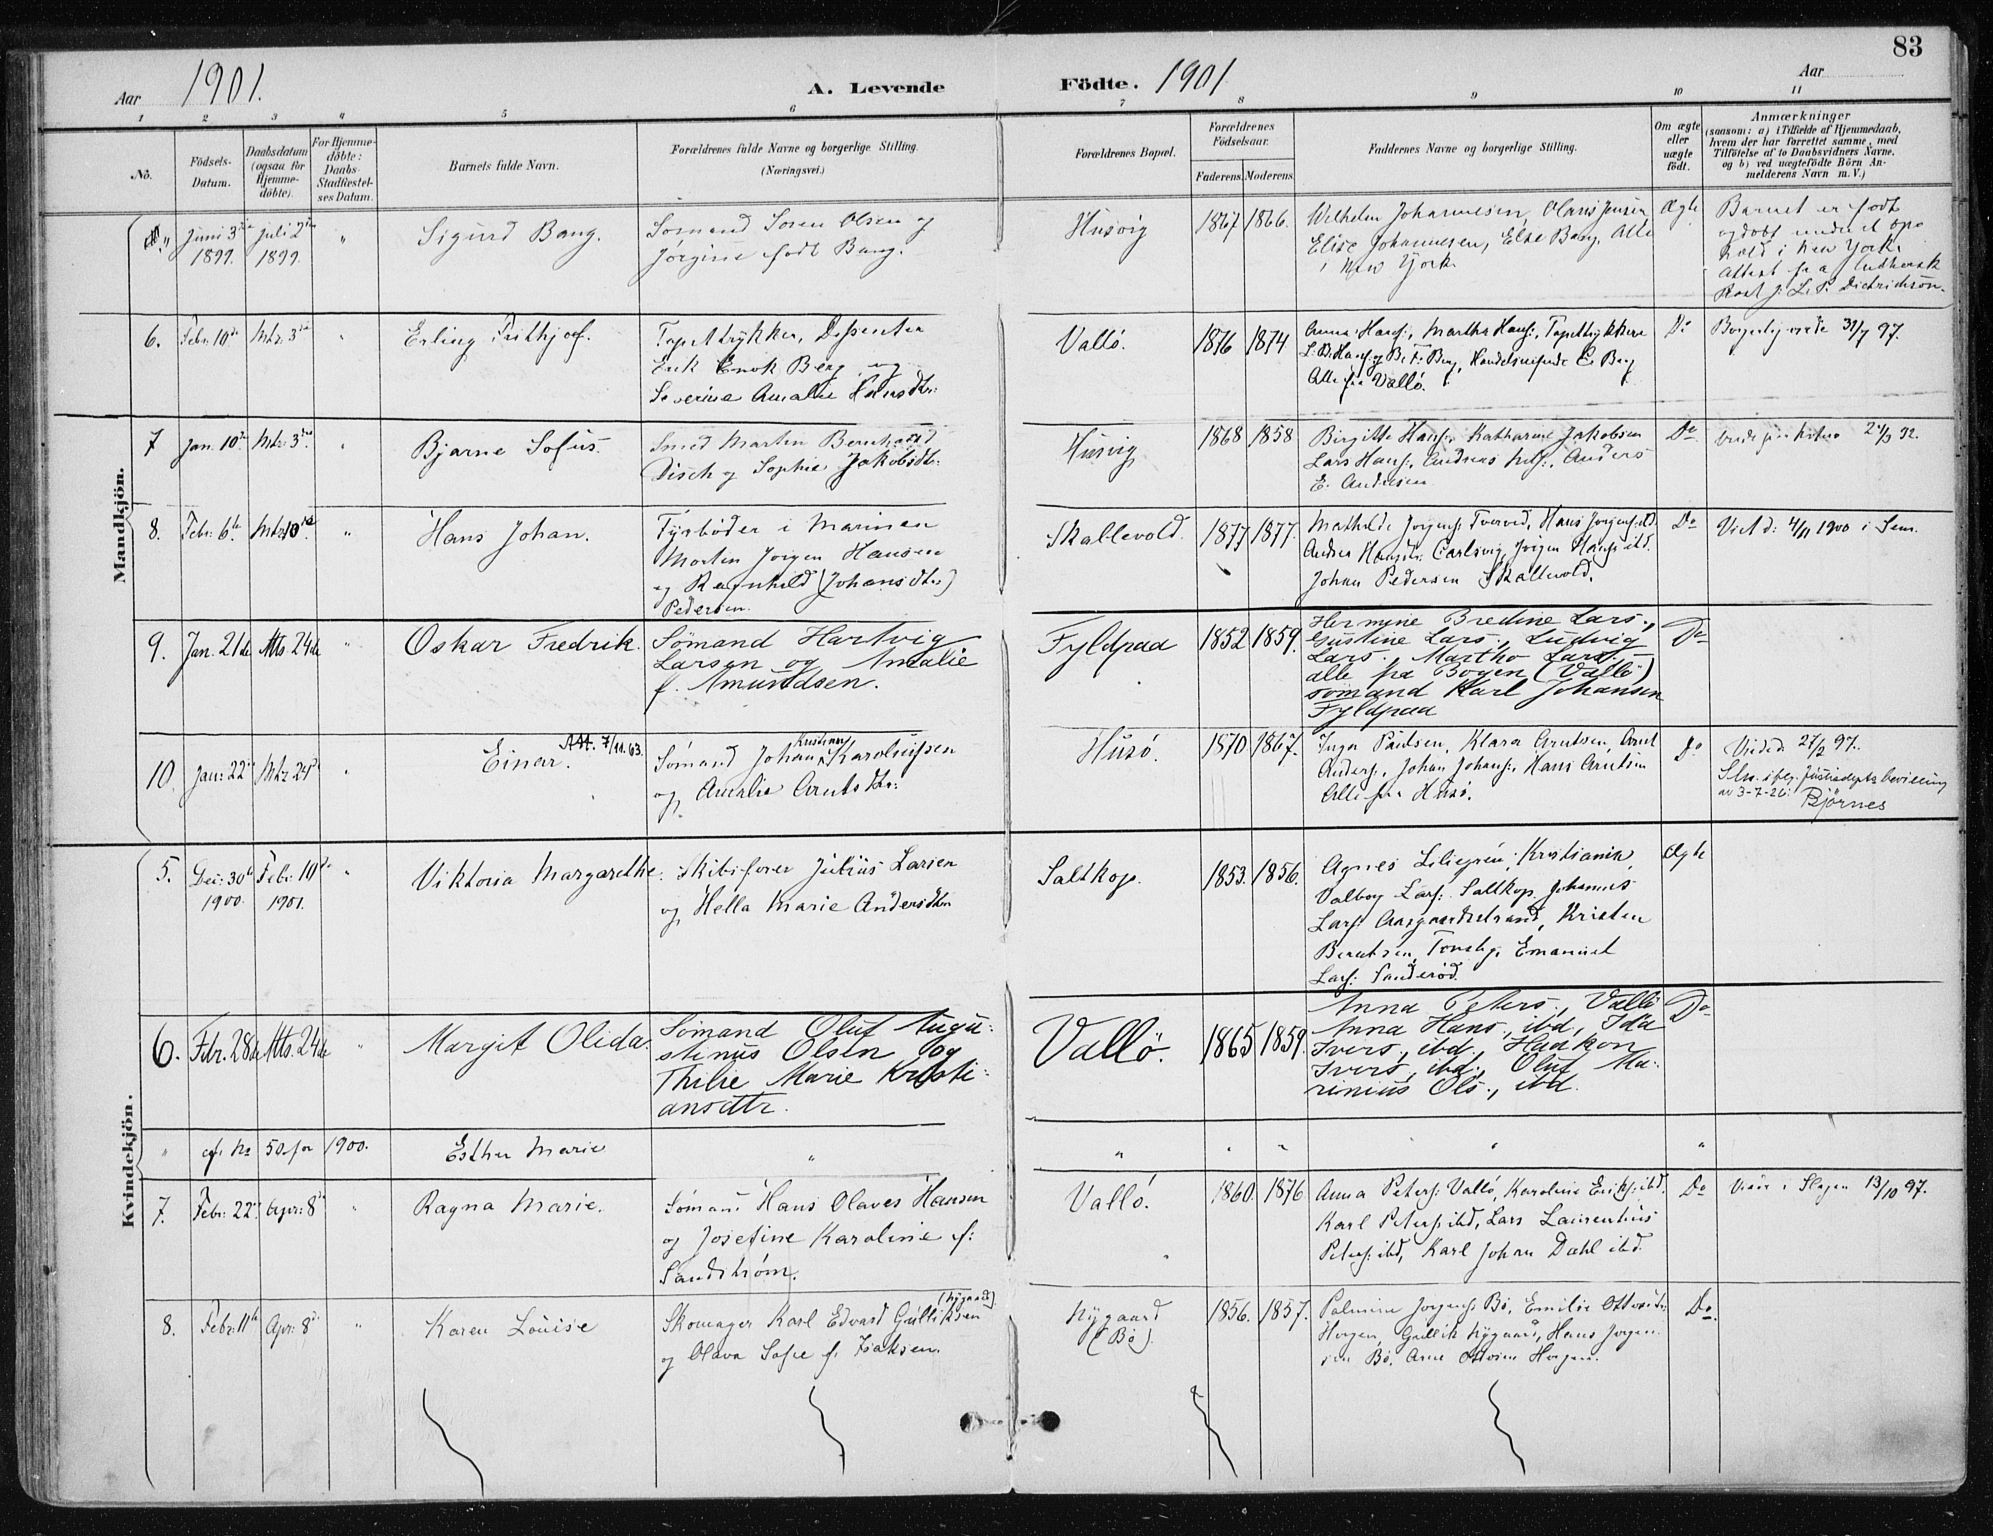 83
Aar 1901. A. Levende Födte. 1901 Aar
1 2 3 4 5 6 7 8 9 10 11
No.
Födsels-Datum.
Daabsdatum (ogsaa for Hjemme-döbte).
For Hjemme-döbte: Daabs-Stadfæstel-ses Datum.
Barnets fulde Navn.
Forældrenes fulde Navne og borgerlige Stilling.
(Næringsvei.)
Forældrenes Bopæl.
Forældrenes Födselsaar.
Faderens. Moderens.
Faddernes Navne og borgerlige Stilling.
Om ægte eller uægte födt.
Anmærkninger
(saasom: a) i Tilfælde af Hjemmedaab,
hvem der har forrettet samme, med
Tilföielse af to Daabsvidners Navne.
og b) ved uægtefödte Börn An-
melderens Navn m. V.)
Mandkjön.
Juni 3die 1899. Juli 2den 1899. " Sigurd Bang.
Sømand Soren Olsen og
Jørgine født Bang.
Husvig 1867 1866.
Wilhelm Johannesen, Olaus Jensen
Elise Johannesen, Else Bang, Alle
i New York.
Ægte
Barnet er født
og døbt under et Op-
hold i New York.
Attest fra luthersk
Præst J. L. P. Dietrichson.
6. Febr. 10de Mts. 3die " Erling Frithjof.
Tapettrykker, Dissenter
Erik Enok Berg og
Severine Amalie Hansdtr:
Vallö. 1876 1874
Anna Hans:, Martha Hans:, Tapettrykkere
L. B. Hans: og B. F. Berg, Handelsreisende E. Berg
Alle fra Vallö.
Do Borgerlig viede 31/7 97.
7 Jan. 10de Mts. 3die " Bjarne Sofus.
Smed Martin Bernhard
Disch og Sophie Jakobsdtr:
Husvig 1868 1858
Birgitte Hans:, Katharine Jakobsen
Lars Hans:, Andreas, Anders
E. Andersen
Do
8. Febr. 6te Mts. 10de " Hans Johan.
Fyrbøder i Marinen
Morten Jorgen Hansen
og Ragnhild (Johansdtr)
Pedersen.
Skallevold. 1877 1877.
Mathilde Jorgens: Tverved, Hans Jorgens: ibd.
Andrea Hansdtr: Carlsvig, Jörgen Hans: ibd.
Johan Pedersen Skallevold.
Do Viet d: 4/11 1900 i Sem.
9. Jan. 21de Mts. 24de " Oskar Fredrik.
Sømand Hartvig
Larsen og Amalie
f. Amundsen.
Fyldpaa 1852 1859.
Hermine Bredine Lars.,
Gustine Lars., Ludvig
Lars. Martho Lars.
alle pa Bogen (Vallö)
sømand Karl Johansen
Fyldpaa
Do
10. Jan: 22de Mts. 24de " Einar. Att. 7/11.63.
Sømand Johan Kristian Karoliussen
og Amalie Arntsdtr:
Husö. 1870 1867.
Inga Paulsen, Klara Arntsen, Arnt
Anders:, Johan Johans:, Hans Arntsen
Alle fra Husö.
Do Viede d. 27/2 97.
Sln. iflg. Justisdepts bevilling
av 3-7-26: Björnes
Kvindekjön.
5. Dec: 30te 1900. Febr: 10de 1901. " Viktoria Margarethe.
Skibsfører Julius Larsen
og Hella Marie Andersdtr
Saltkop. 1853. 1856.
Agnes Liliegren, Kristiania,
Valborg Lars: Saltkop, Johannes
Lars: Aasgaardstrand, Kristen
Berntsen, Tønsbg, Emanuel
Lars: Sanderöd.
Ægte
6. Febr. 28de Mts. 24de " Margit Olida.
Sömand Oluf Augu-
stinus Olsen og
Thilie Marie Kristi-
ansdtr.
Vallö. 1865 1859.
Anna Peters., Vallö
Anna Hans., ibd, Ida
Ivers., ibd., Haakon
Ivers, ibd., Oluf Ma-
rinius Ols., ibd.
Do
" cfr. No 50 for 1900. Esther Marie " " " " " "
7. Febr: 22de Apr: 8de " Ragna Marie.
Sømand Hans Olaves Hansen
og Josefine Karoline f:
Sandstrøm.
Vallö. 1860. 1876
Anna Peters: Vallö, Karoline Eriks: ibd.
Karl Peters: ibd, Lars Laurentius
Peters: ibd, Karl Johan Dahl ibd.
Do Viede i Slagen 13/10 97.
8. Febr: 11te Apr: 8de " Karen Louise
Skomager Karl Edvard Gulliksen (Nygaard).
og Olava Sofie f. Isaksen.
Nygaard
(Bö). 1856. 1857.
Palmine Jorgens: Bö, Emilie Ottersdtr:
Horgen, Gullik Nygaard, Hans Jorgen-
sen Bö, Arne Ottersen Horgen.
Do.